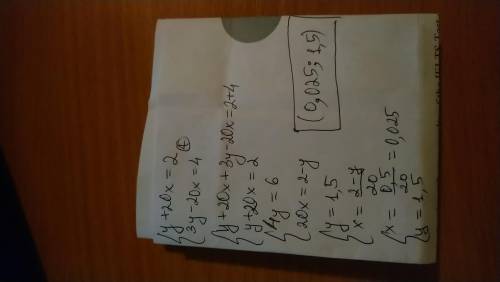 { y + 20x = 2
3y - 20x = 4 (+)
{ y + 20x + 3y - 20x = 2 + 4
y + 20x = 2
{ 4y = 6
20x = 2 - y
{ y = 1,5
x = (2 - y)/20
{ x = 0,5/20 = 0,025
y = 1,5
(0,025; 1,5)